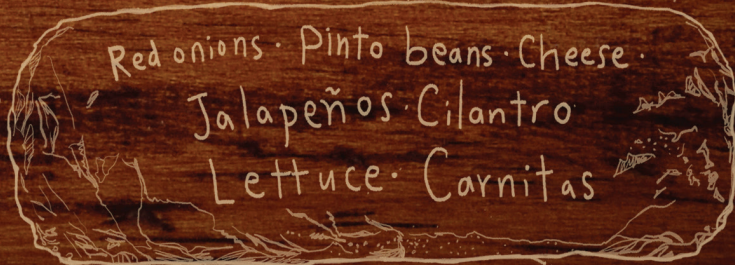 Red onions · Pinto beans · Cheese ·
Jalapeños · Cilantro
Lettuce · Carnitas